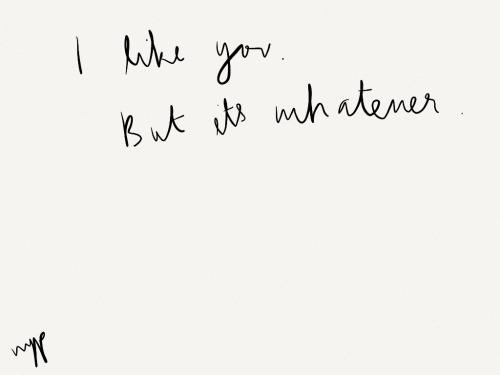 I like you.
But its whatever.